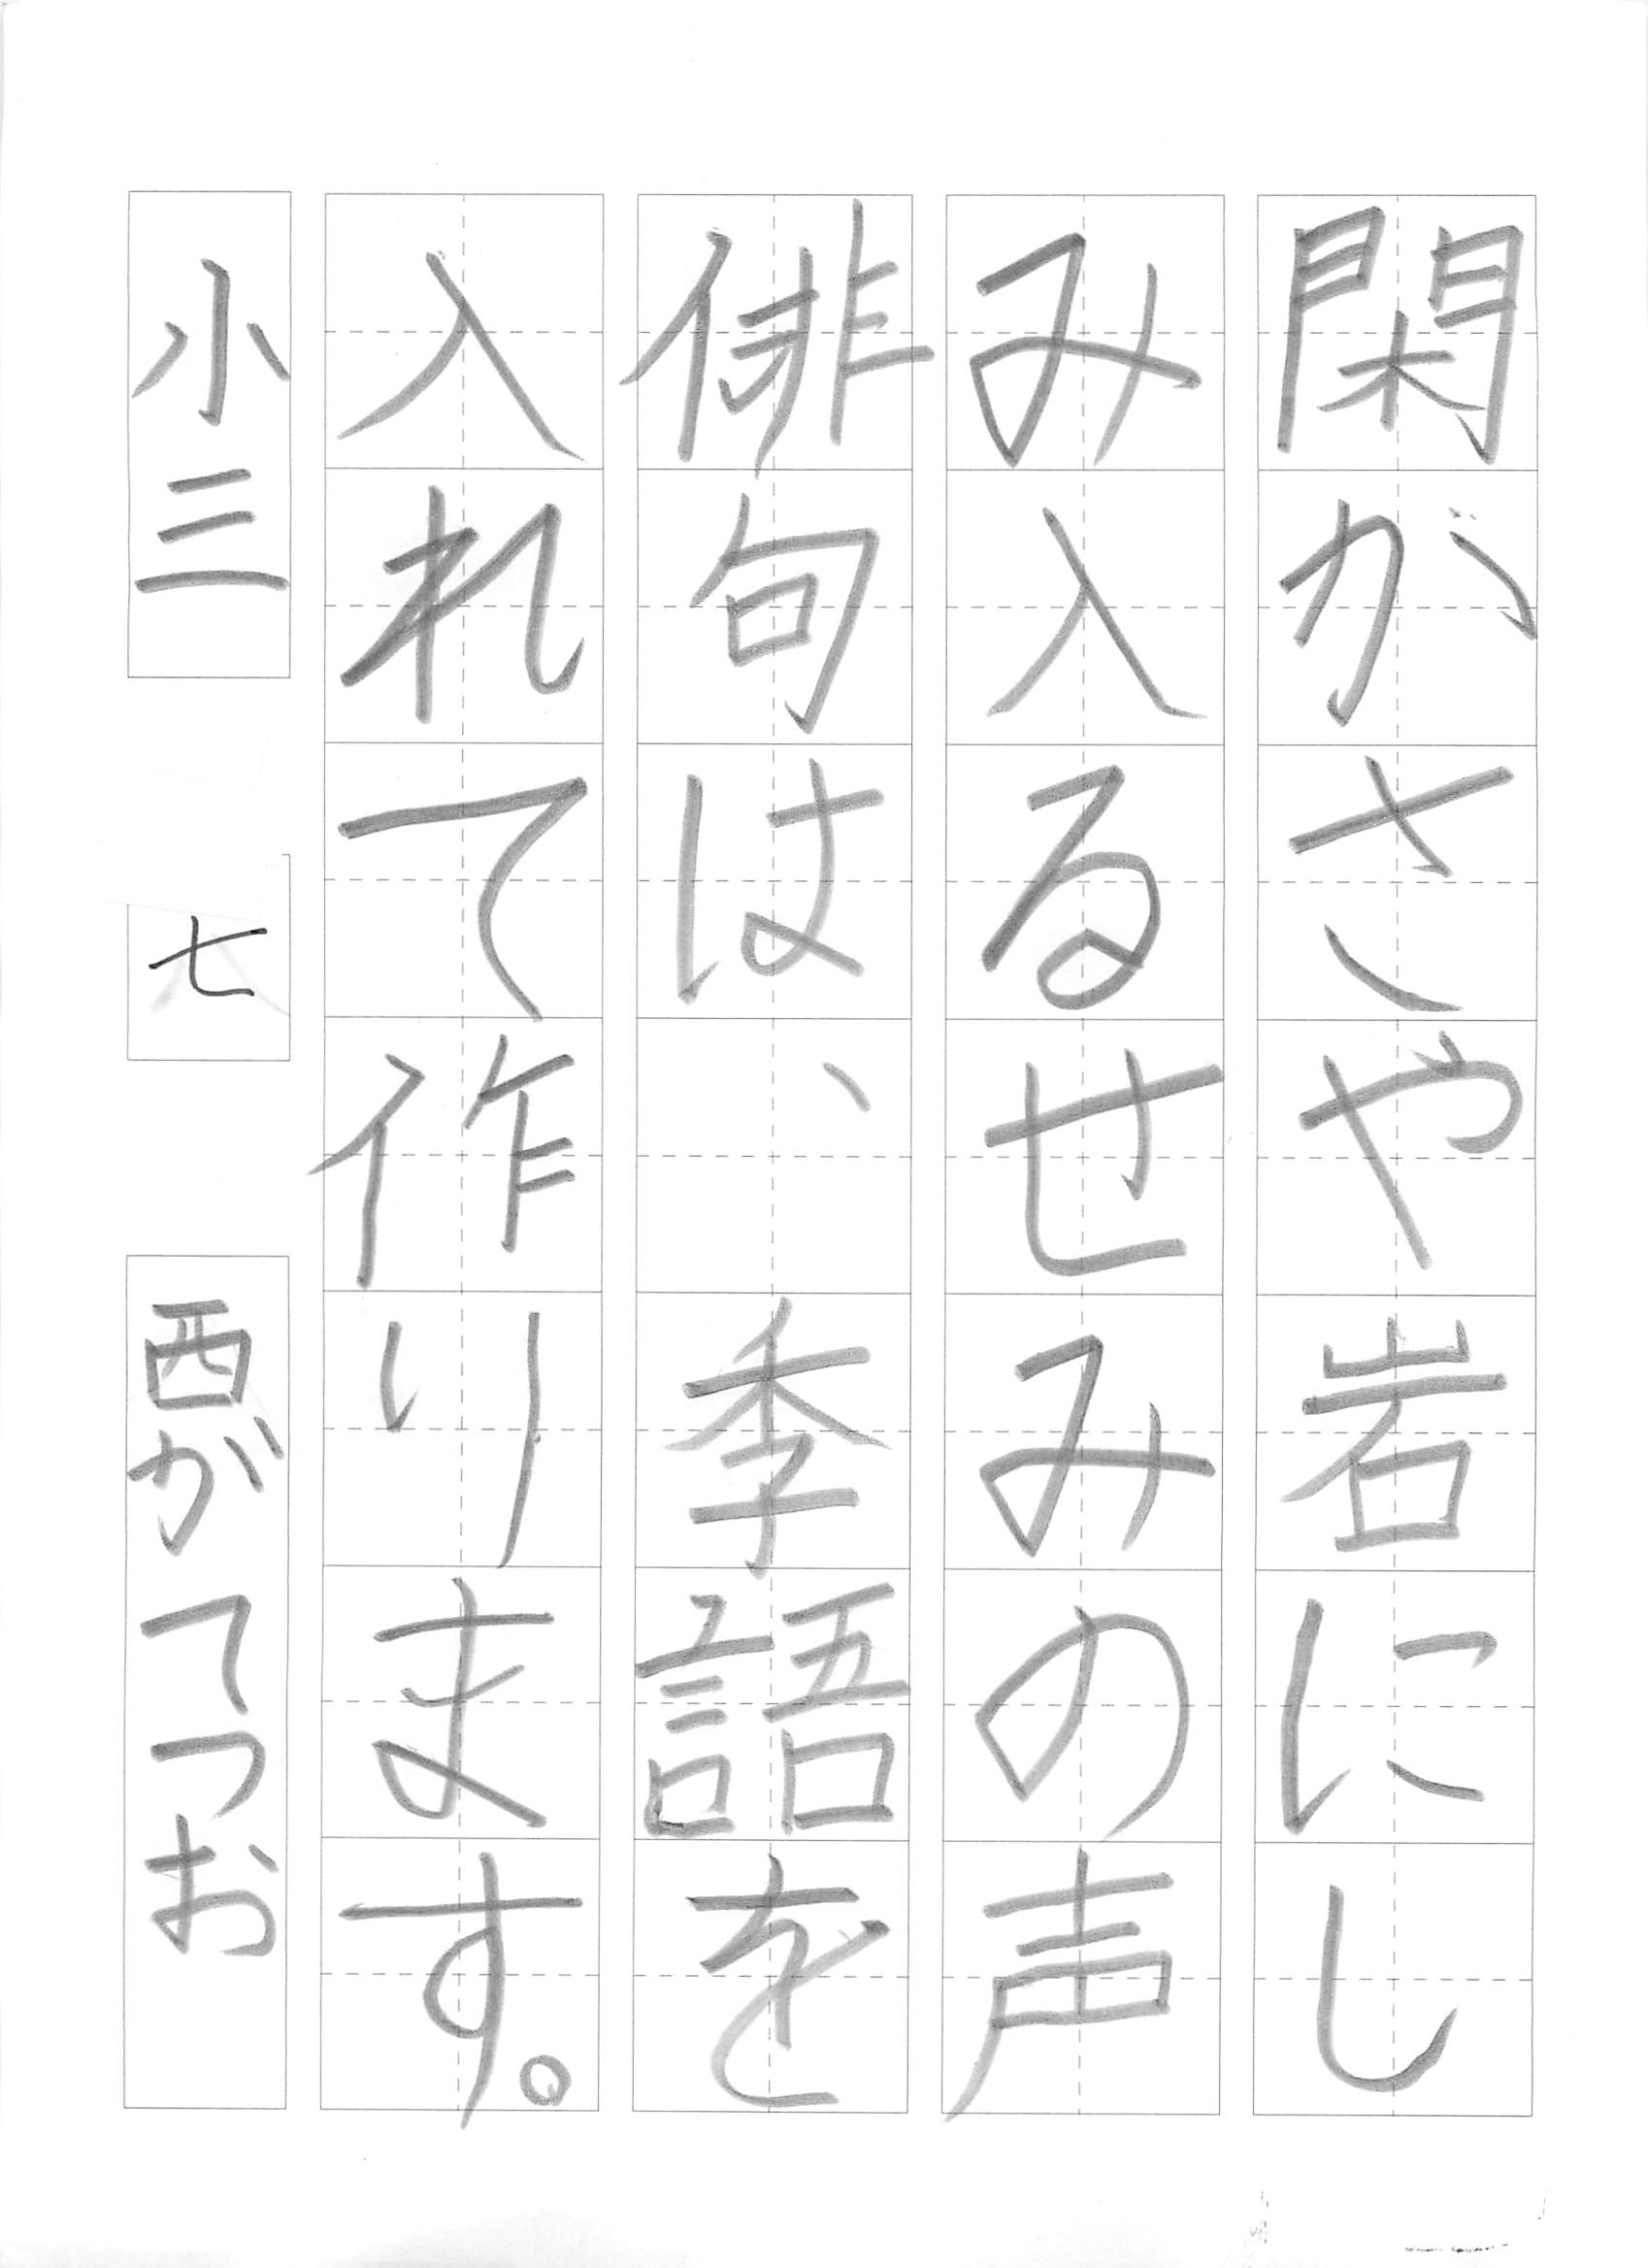 閑がさや岩にし
み入るせみの声
俳句は、季語を
入れて作ります。
小三
七
西がてつお